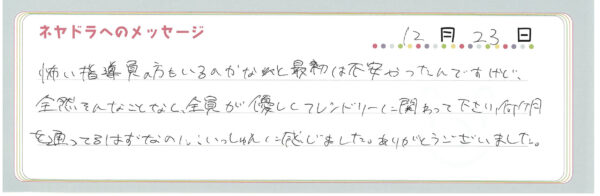 ネヤドラへのメッセージ
12月23日
怖い指導員の方もいるのかなぁと最初は不安やったんですけど、
全然そんなことなく、全員が優しくフレンドリーに関わって下さり、何ヶ月
も通ってるはずなのに、いっしゅんに感じました。ありがとうございました。